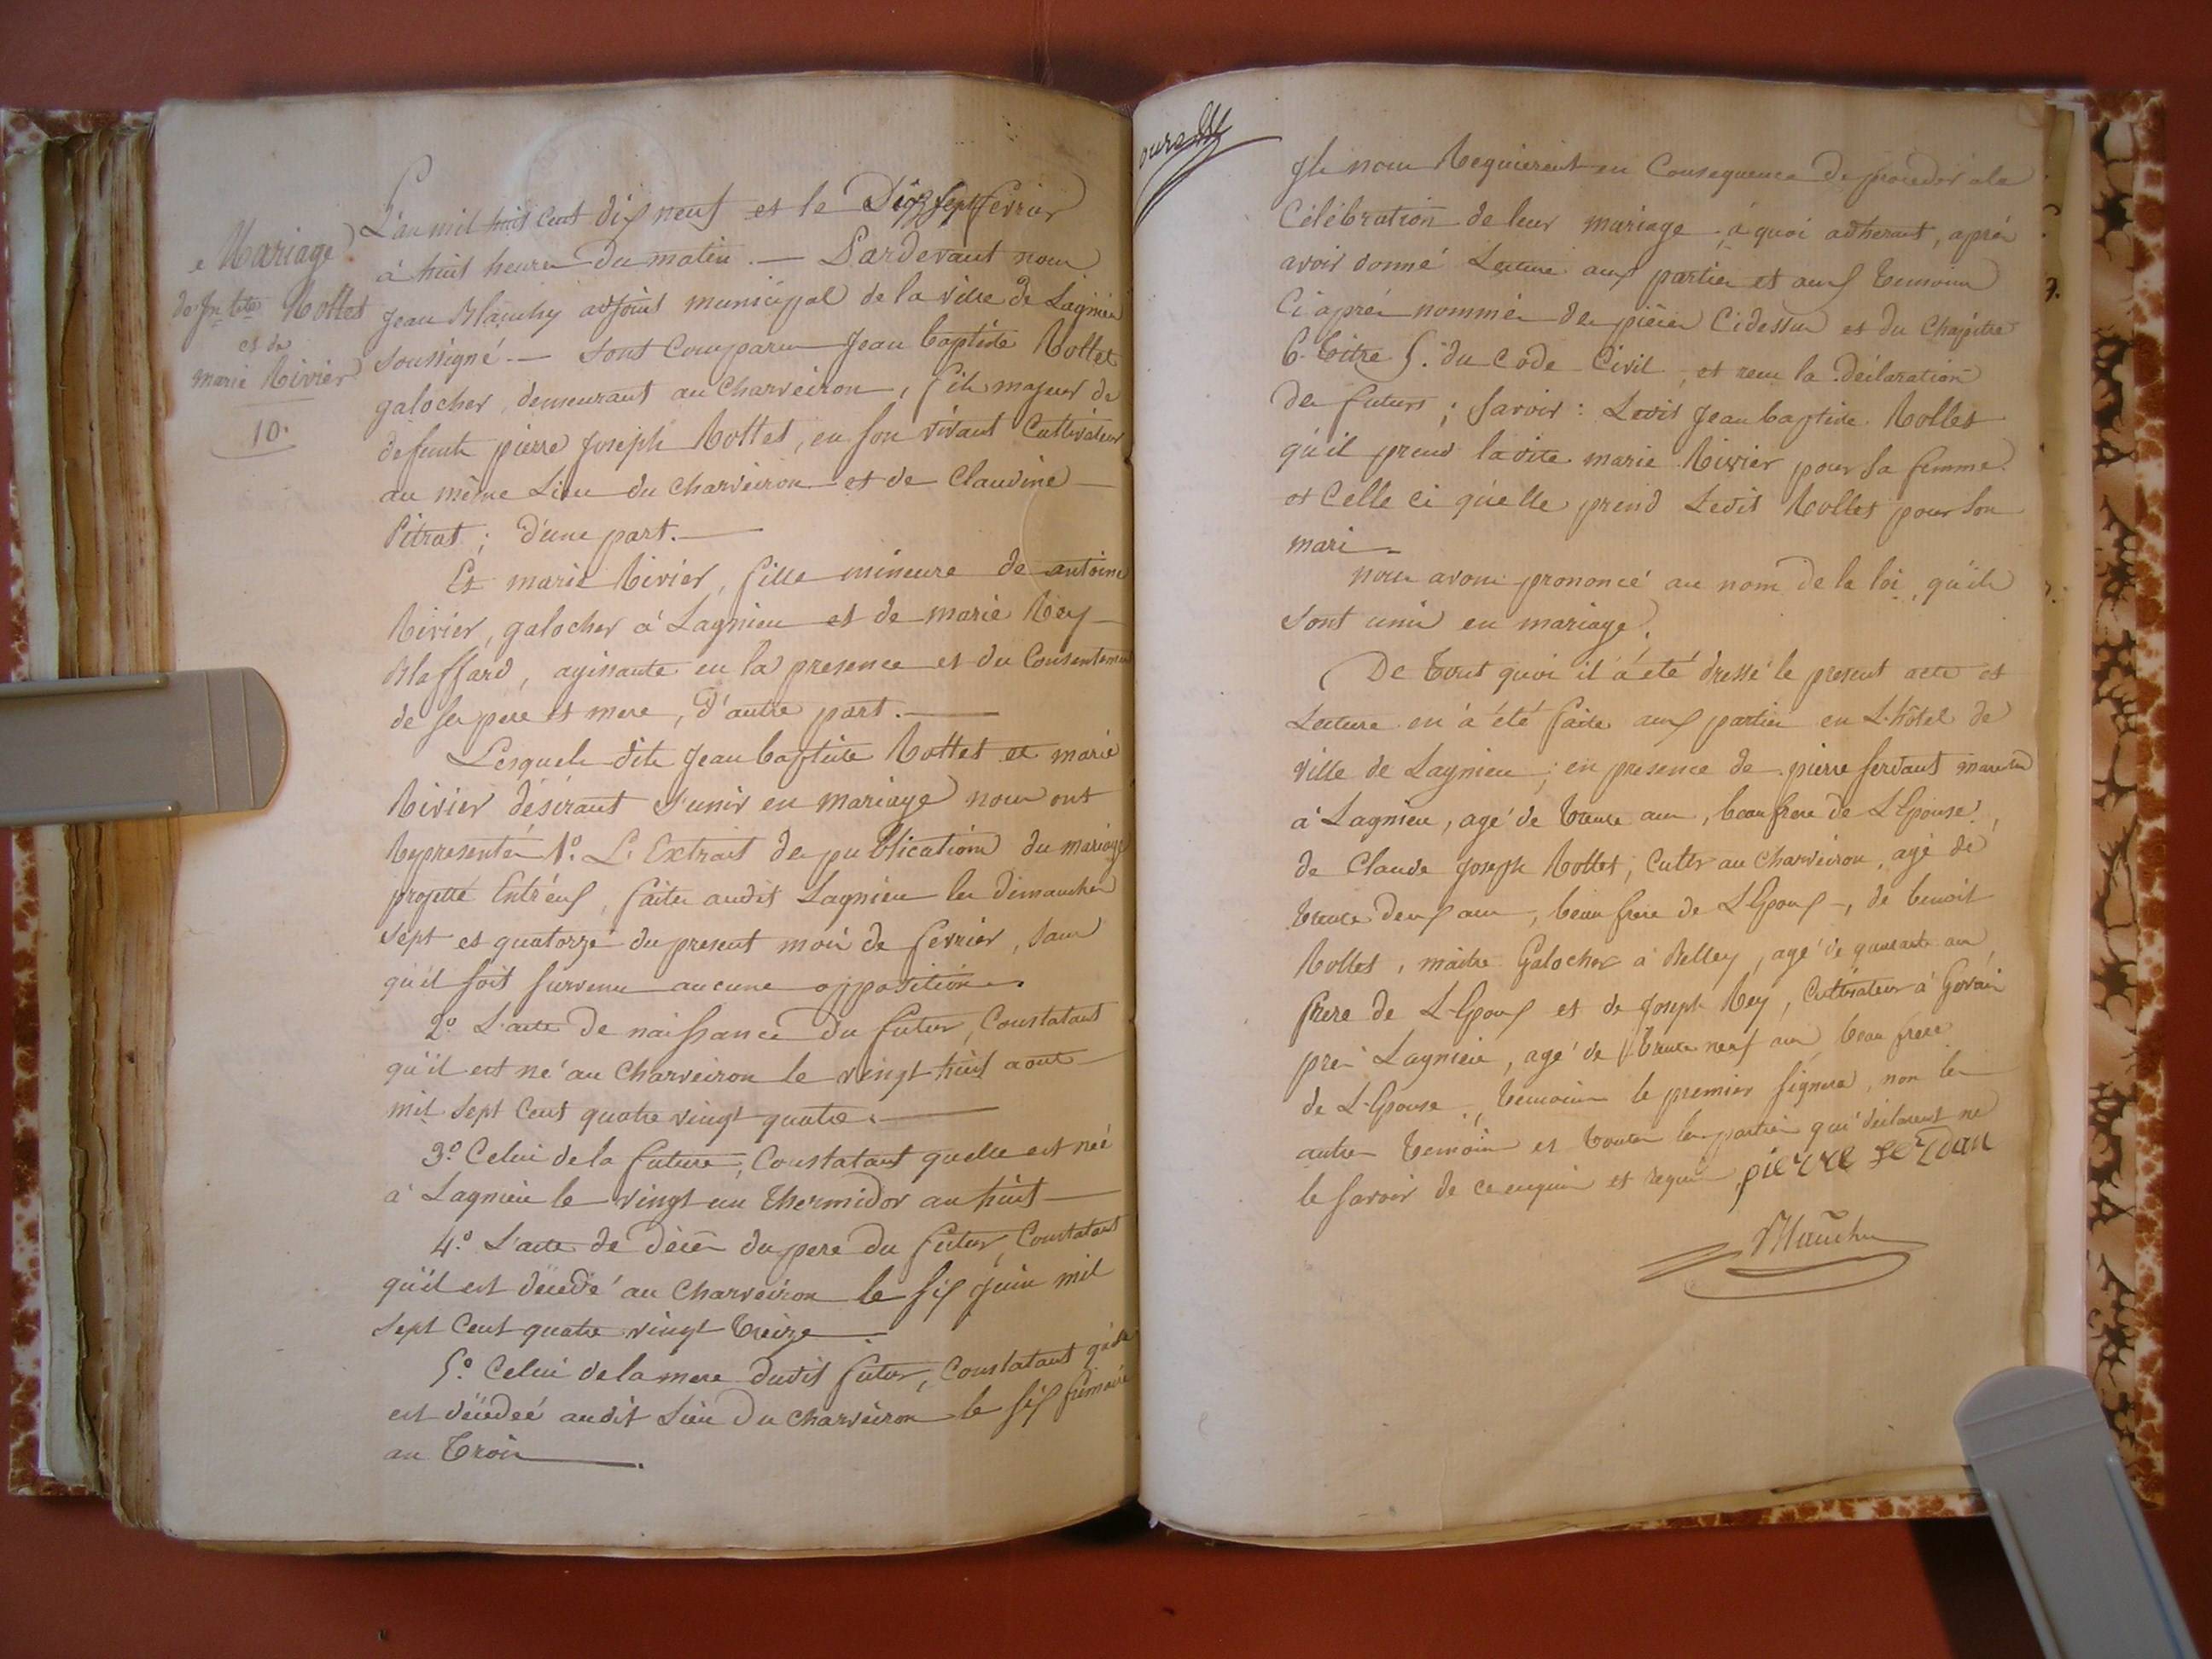 Mariage
de Jn. Bte. Rottet
et de
marie Rivier
10.
L'an mil huit cent dix neuf et le Dix sept fevrier
à huit heures du matin. — Pardevant nous
Jean Blanchy adjoint municipal de la ville de Lagnieu
soussigné. — sont comparus Jean baptiste Rottet
galocher, demeurant au Charveiron, fils majeur de
defunts pierre Joseph Rottet, en son vivant Cultivateur
au même Lieu du charveiron et de Claudine —
Pitrat ; d'une part. —
Et marie Rivier, fille mineure de antoine
Rivier, galocher à Lagnieu et de marie Rey —
Blaffard, agissante en la presence et du Consentement
de ses pere et mere, d'autre part. —
Lesquels dits Jean baptiste Rottet et marie
Rivier désirant s'unir en mariage nous ont
Representés 1.º L'Extrait des publications du mariage
projetté Entr'eux, faites audit Lagnieu les dimanches
sept et quatorze du present mois de fevrier, sans
qu'il soit survenu aucune opposition.
2.º L'acte de naissance du futur, Constatant
qu'il est né au Charveiron le vingt huit aout
mil sept Cent quatre vingt quatre. —
3.º Celui de la future, Constatant quelle est née
à Lagnieu le vingt un Thermidor an huit —
4.º L'acte de décès du pere du futur, Constatant
qu'il est décédé au Charveiron le six Juin mil
sept Cent quatre vingt treize —
5.º Celui de la mere dudit futur, Constatant qu'elle
est décédeé audit Lieu du charveiron le six frimaire
an Trois —.
Ils nous Requierent en Consequence de proceder a la
Célébration de leur mariage, à quoi adherant, aprés
avoir donné Lecture aux parties et aux temoins
Ci aprés nommés des pieces Cidessus et du Chapitre
6. titre 5. du Code Civil, et recu la déclaration
des futurs ; savoir : Ledit Jean baptiste Rollet
qu'il prend ladite marie Rivier pour sa femme
et Celle ci qu'elle prend Ledit Rollet pour son
mari —
nous avons prononcé au nom de la loi, qu'ils
sont unis en mariage.
De tout quoi il a été dressé le present acte et
Lecture en à été faite aux parties en L'hôtel de
ville de Lagnieu ; en presence de pierre serdant
à Lagnieu, agé de trente ans, beau frere de L'Epouse,
de Claude Joseph Rottet, Cultr au Charveiron, agé de
trente deux ans, beau frere de L'Epoux, de benoit
Rollet, maitre Galocher à Belley, agé de quarante ans
frere de L'Epoux et de Joseph Rey, Cultivateur à
prés Lagnieu, agé de trente neuf ans beau frere
de L'Epouse, temoins le premier signera, non les
autres temoins et toutes les parties qui déclarent ne
le savoir de ce enquis et requis pierre serdan
Blanchy